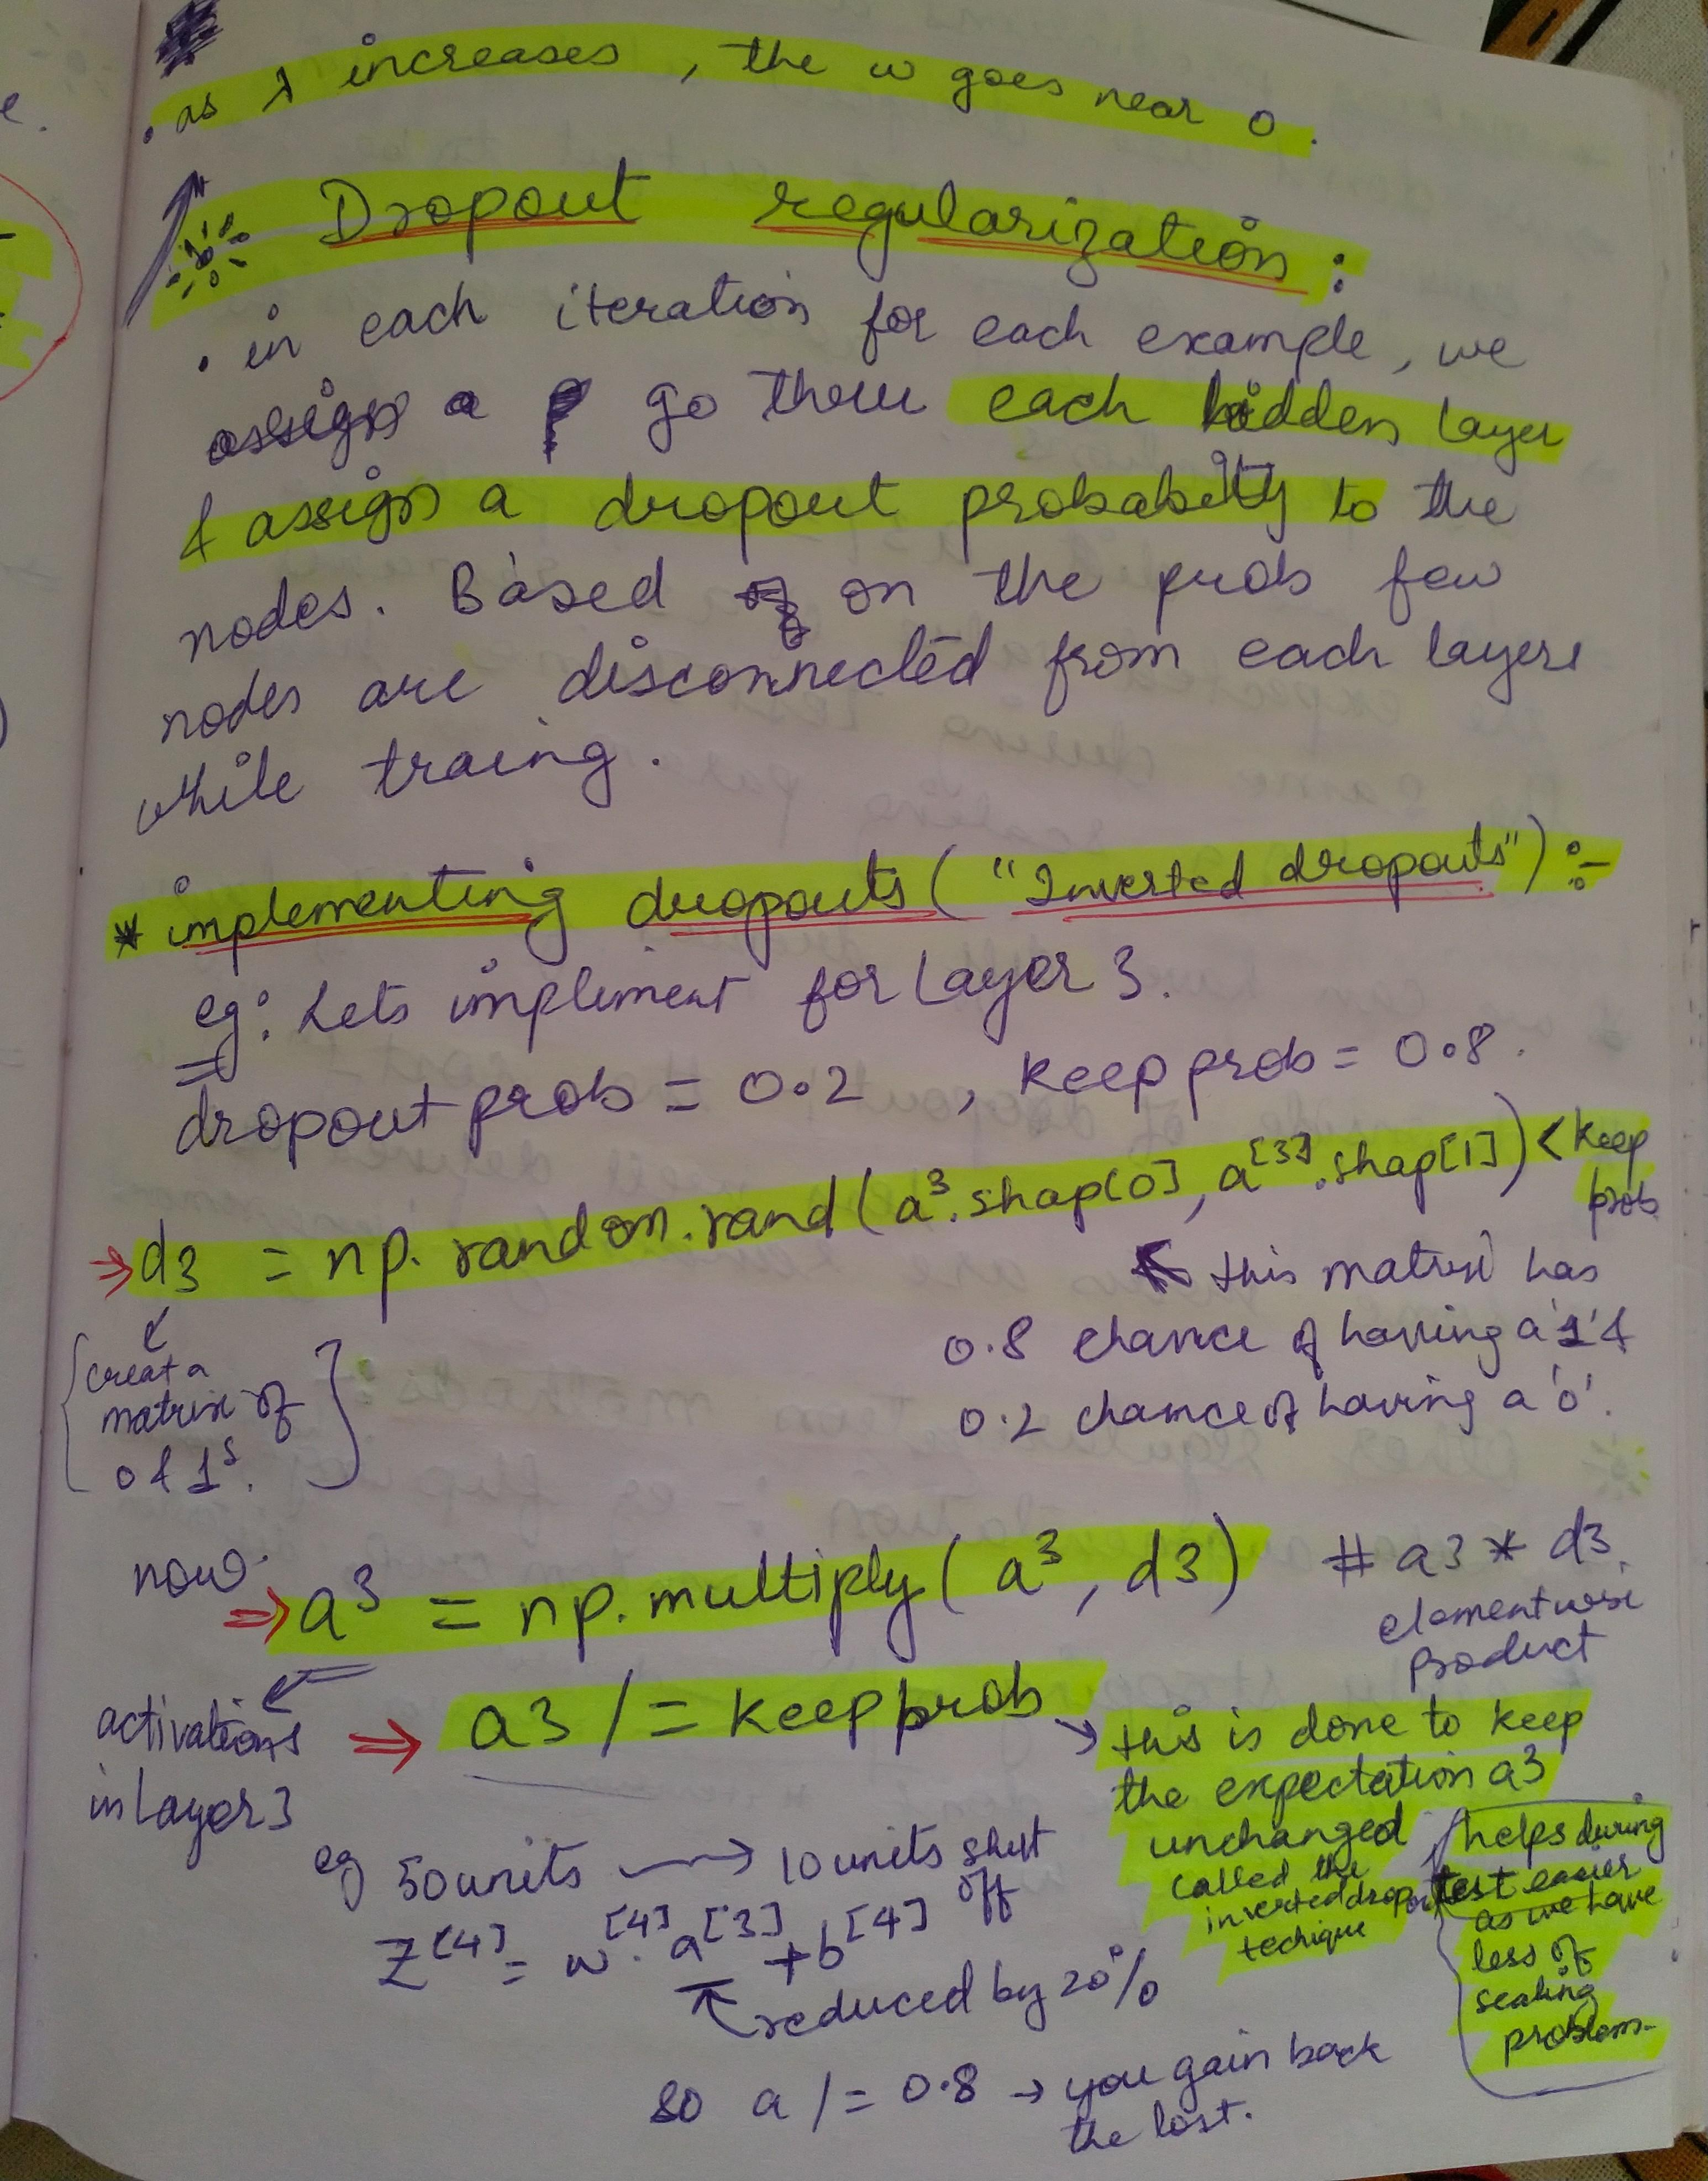 . as λ increases, the w goes near 0.
Dropout regularization:
. in each iteration for each example, we
go thru each hidden layer
& assign a dropout probability to the
nodes. Based on the prob few
nodes are disconnected from each layers
while traing.
* implementing dropouts ("Inverted dropouts") :-
eg: Lets implement for Layer 3.
dropout prob = 0.2 , keep prob = 0.8.
⇒ d3 = np.random.rand(a³.shap[0], a[3].shap[1]) < keep
prob
this matrix has
0.8 chance of having a '1' &
0.2 chance of having a '0'.
{creat a
matrix of
0 & 1s.}
now
⇒ a³ = np.multiply(a³, d3) # a3 * d3.
elementwise
product
activations
in layer 3
⇒ a3 /= keep prob
→ this is done to keep
the expectation a3
unchanged
called the
inverted dropout
techique
helps during
test easier
as we have
less of
scaling
problem.
eg 50 units → 10 units shut
off
Z[4] = w[4]. a[3] + b[4]
reduced by 20%
so a /= 0.8 → you gain back
the lost.